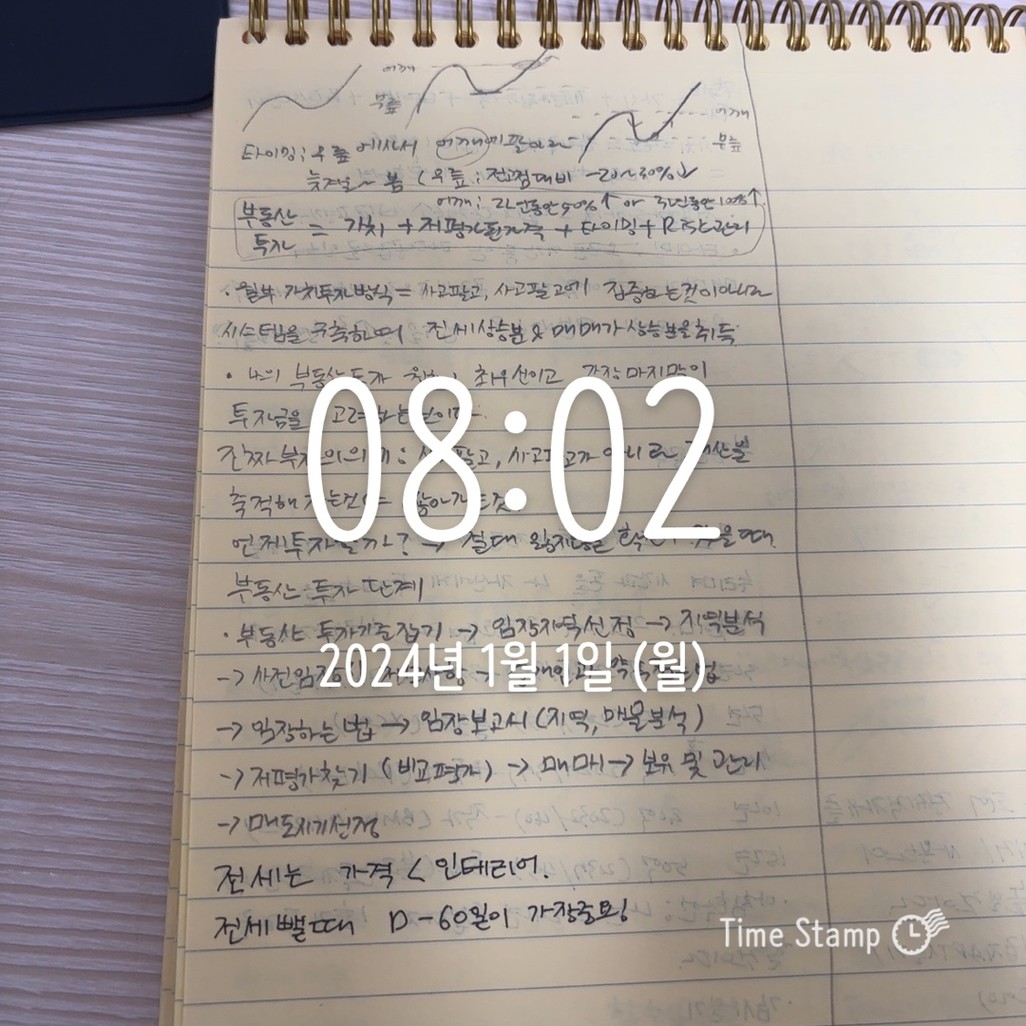 어깨
무릎
어깨
무릎
타이밍; 무릎에서 사서 어깨에 팔아라
늦겨울~봄 (무릎; 전고점대비 -20~30%↓
어깨; 2년동안 50%↑ or 3년동안 100%↑
부동산 투자 = 가치 + 저평가된가격 + 타이밍 + Risk관리
· 월부 가치투자방식 = 사고팔고, 사고팔고에 집중하는것이아니라
시스템을 구축하며 전세상승분 & 매매가 상승분을 취득
· 나의 부동산투자 최우선이고 가장 마지막이
투자금을 고려하는것이다.
진짜 부자의 의미; 사고팔고, 사고팔고가 아니라 자산을
축적해
언제투자할까? → 절대 잃지않을 있을때.
부동산 투자 단계
· 부동산 투자기준잡기 → 임장지역선정 → 지역분석
→ 사전임장 →
→ 임장하는 법 → 임장보고서 (지역, 매물분석)
→ 저평가찾기 (비교평가) → 매매 → 보유 및 관리
→ 매도시기선정
전세는 가격 < 인테리어.
전세뺄때 D-60일이 가장중요
08:02
2024년 1월 1일 (월)
Time Stamp